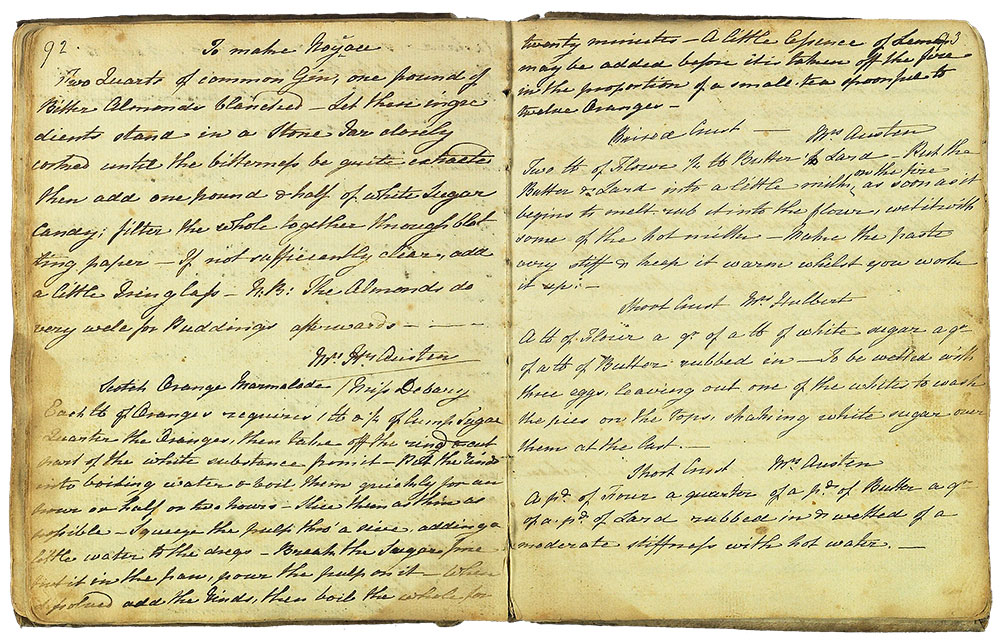 92.
To make Noyau
Two Quarts of common Gin, one pound of
Bitter Almonds blanched – Let these ingre
dients stand in a Stone Jar closely
corked until the bitterness be quite extracted
then add one pound & half of white Sugar
Candy; filter the whole together through blot
ting paper – If not sufficiently clear, add
a little Isinglass – N.B: The Almonds do
very well for Puddings afterwards – – –
Mrs. Hy. Austen
Scotch Orange Marmalade / Miss Debary
Each lb of Oranges requires 1 lb & ½ of Lump Sugar
Quarter the Oranges, then take off the rind & cut
part of the white substance from it – Put the rinds
into boiling water & boil them quickly for an
hour & half or two hours – Slice them as thin as
possible – Squeeze the pulp thro a sieve, adding a
little water to the dregs – Break the Sugar fine
put it in the pan, pour the pulp on it – When
dissolved add the rinds, then boil the whole for
93
twenty minutes – A little Essence of Lemon
may be added before it is taken off the fire
in the proportion of a small tea spoonful to
twelve Oranges –
Raised Crust – Mrs Austen
Two lb of Flour ½ lb Butter ½ Lard – Put the
Butter & Lard into a little milk, on the fire as soon as it
begins to melt rub it into the flour, wet it with
some of the hot milk – Make the paste
very stiff & keep it warm whilst you work
it up: –
Short Crust Mrs. Hulbert
A lb of Flour a qr. of a lb of white sugar a qr
of a lb of Butter rubbed in – To be wetted with
three eggs, leaving out one of the whites to wash
the pies on the tops, shaking white sugar over
them at the last. –
Short Crust Mrs. Austen
A pd. of Flour a quarter of a pd. of Butter a qr
of a pd. of Lard rubbed in & wetted of a
moderate stiffness with hot water. –